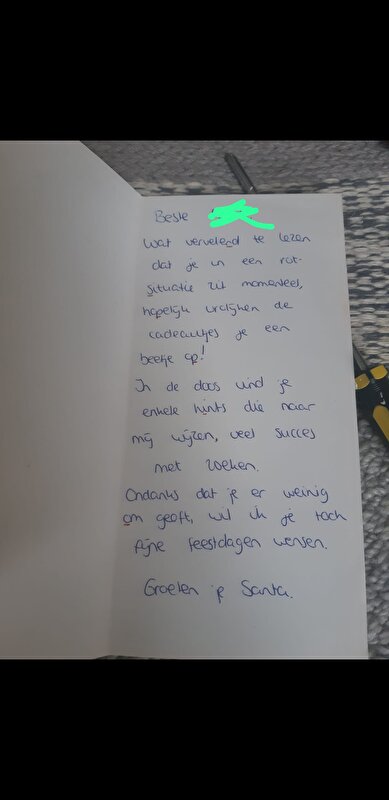 Beste
Wat vervelend te lezen
dat je in een rot-
situatie zit momenteel,
hopelijk vrolijken de
cadeautjes je een
beetje op!
In de doos vind je
enkele hints die naar
mij wijzen, veel succes
met zoeken.
Ondanks dat je er weinig
om geeft, wil ik je toch
fijne feestdagen wensen.
Groeten je Santa.